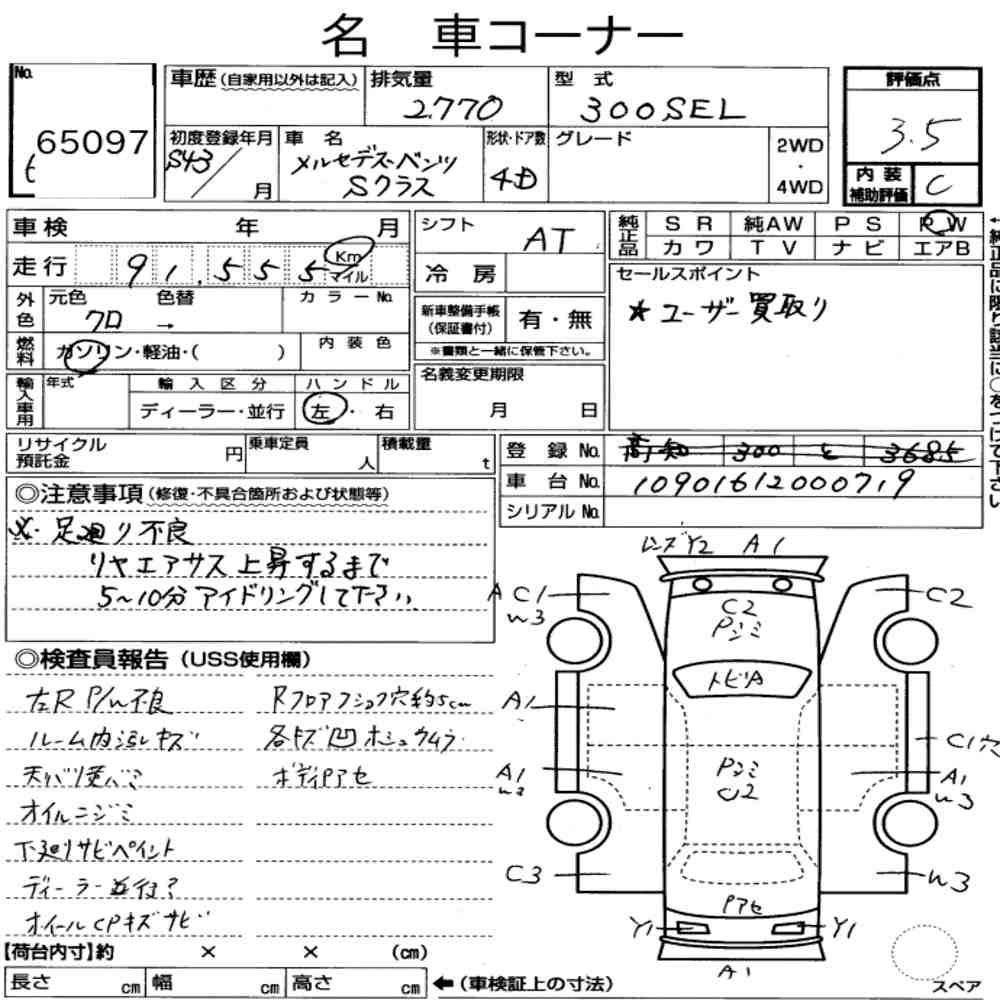 名 車コーナー
No. 65097
t
車歴(自家用以外は記入)
排気量 2770
型 式 300SEL
評価点 3.5
初度登録年月 S43/ 月
車 名 メルセデス・ベンツ Sクラス
形状・ドア数 4D
グレード
2WD・4WD
内 装 補助評価 C
車検 年 月
シフト AT
純正品 SR 純AW PS PW
カワ TV ナビ エアB
走行 91,555 Km マイル
冷 房
セールスポイント
★ ユーザー買取り
外色 元色 クロ → 色替 カラーNo.
新車整備手帳(保証書付) 有・無
※書類と一緒に保管下さい。
燃料 ガソリン・軽油・( ) 内 装 色
名義変更期限 月 日
輸入車用 年式 輸 入 区 分 ハ ン ド ル
ディーラー・並行 左・右
←純正品に限り該当に○をつけて下さい
リサイクル預託金 円 乗車定員 人 積載量 t
登 録 No. 高知 300 と 3685
車 台 No. 10901612000719
シリアル No.
◎注意事項(修復・不具合箇所および状態等)
※・足廻り不良
リヤエアサス上昇するまで
5～10分アイドリングして下さい.
◎検査員報告(USS使用欄)
左R P/W不良
ルーム内 キズ
オイルニジミ
下廻りサビペイント
ディーラー並行?
ホイールCPキズサビ
Rフロアフショク穴約5cm
各キズ凹ホシュウムラ
ボディPアセ
レンズY2 A1
A C1
W3
C2
C2
Pジミ
トビA
A1
C1穴
A1
W2
Pジミ
U2
A1
W3
C3
W3
Pアセ
Y1 Y1
A1
スペア
【荷台内寸】約 × × (cm)
長さ cm 幅 cm 高さ cm ←(車検証上の寸法)